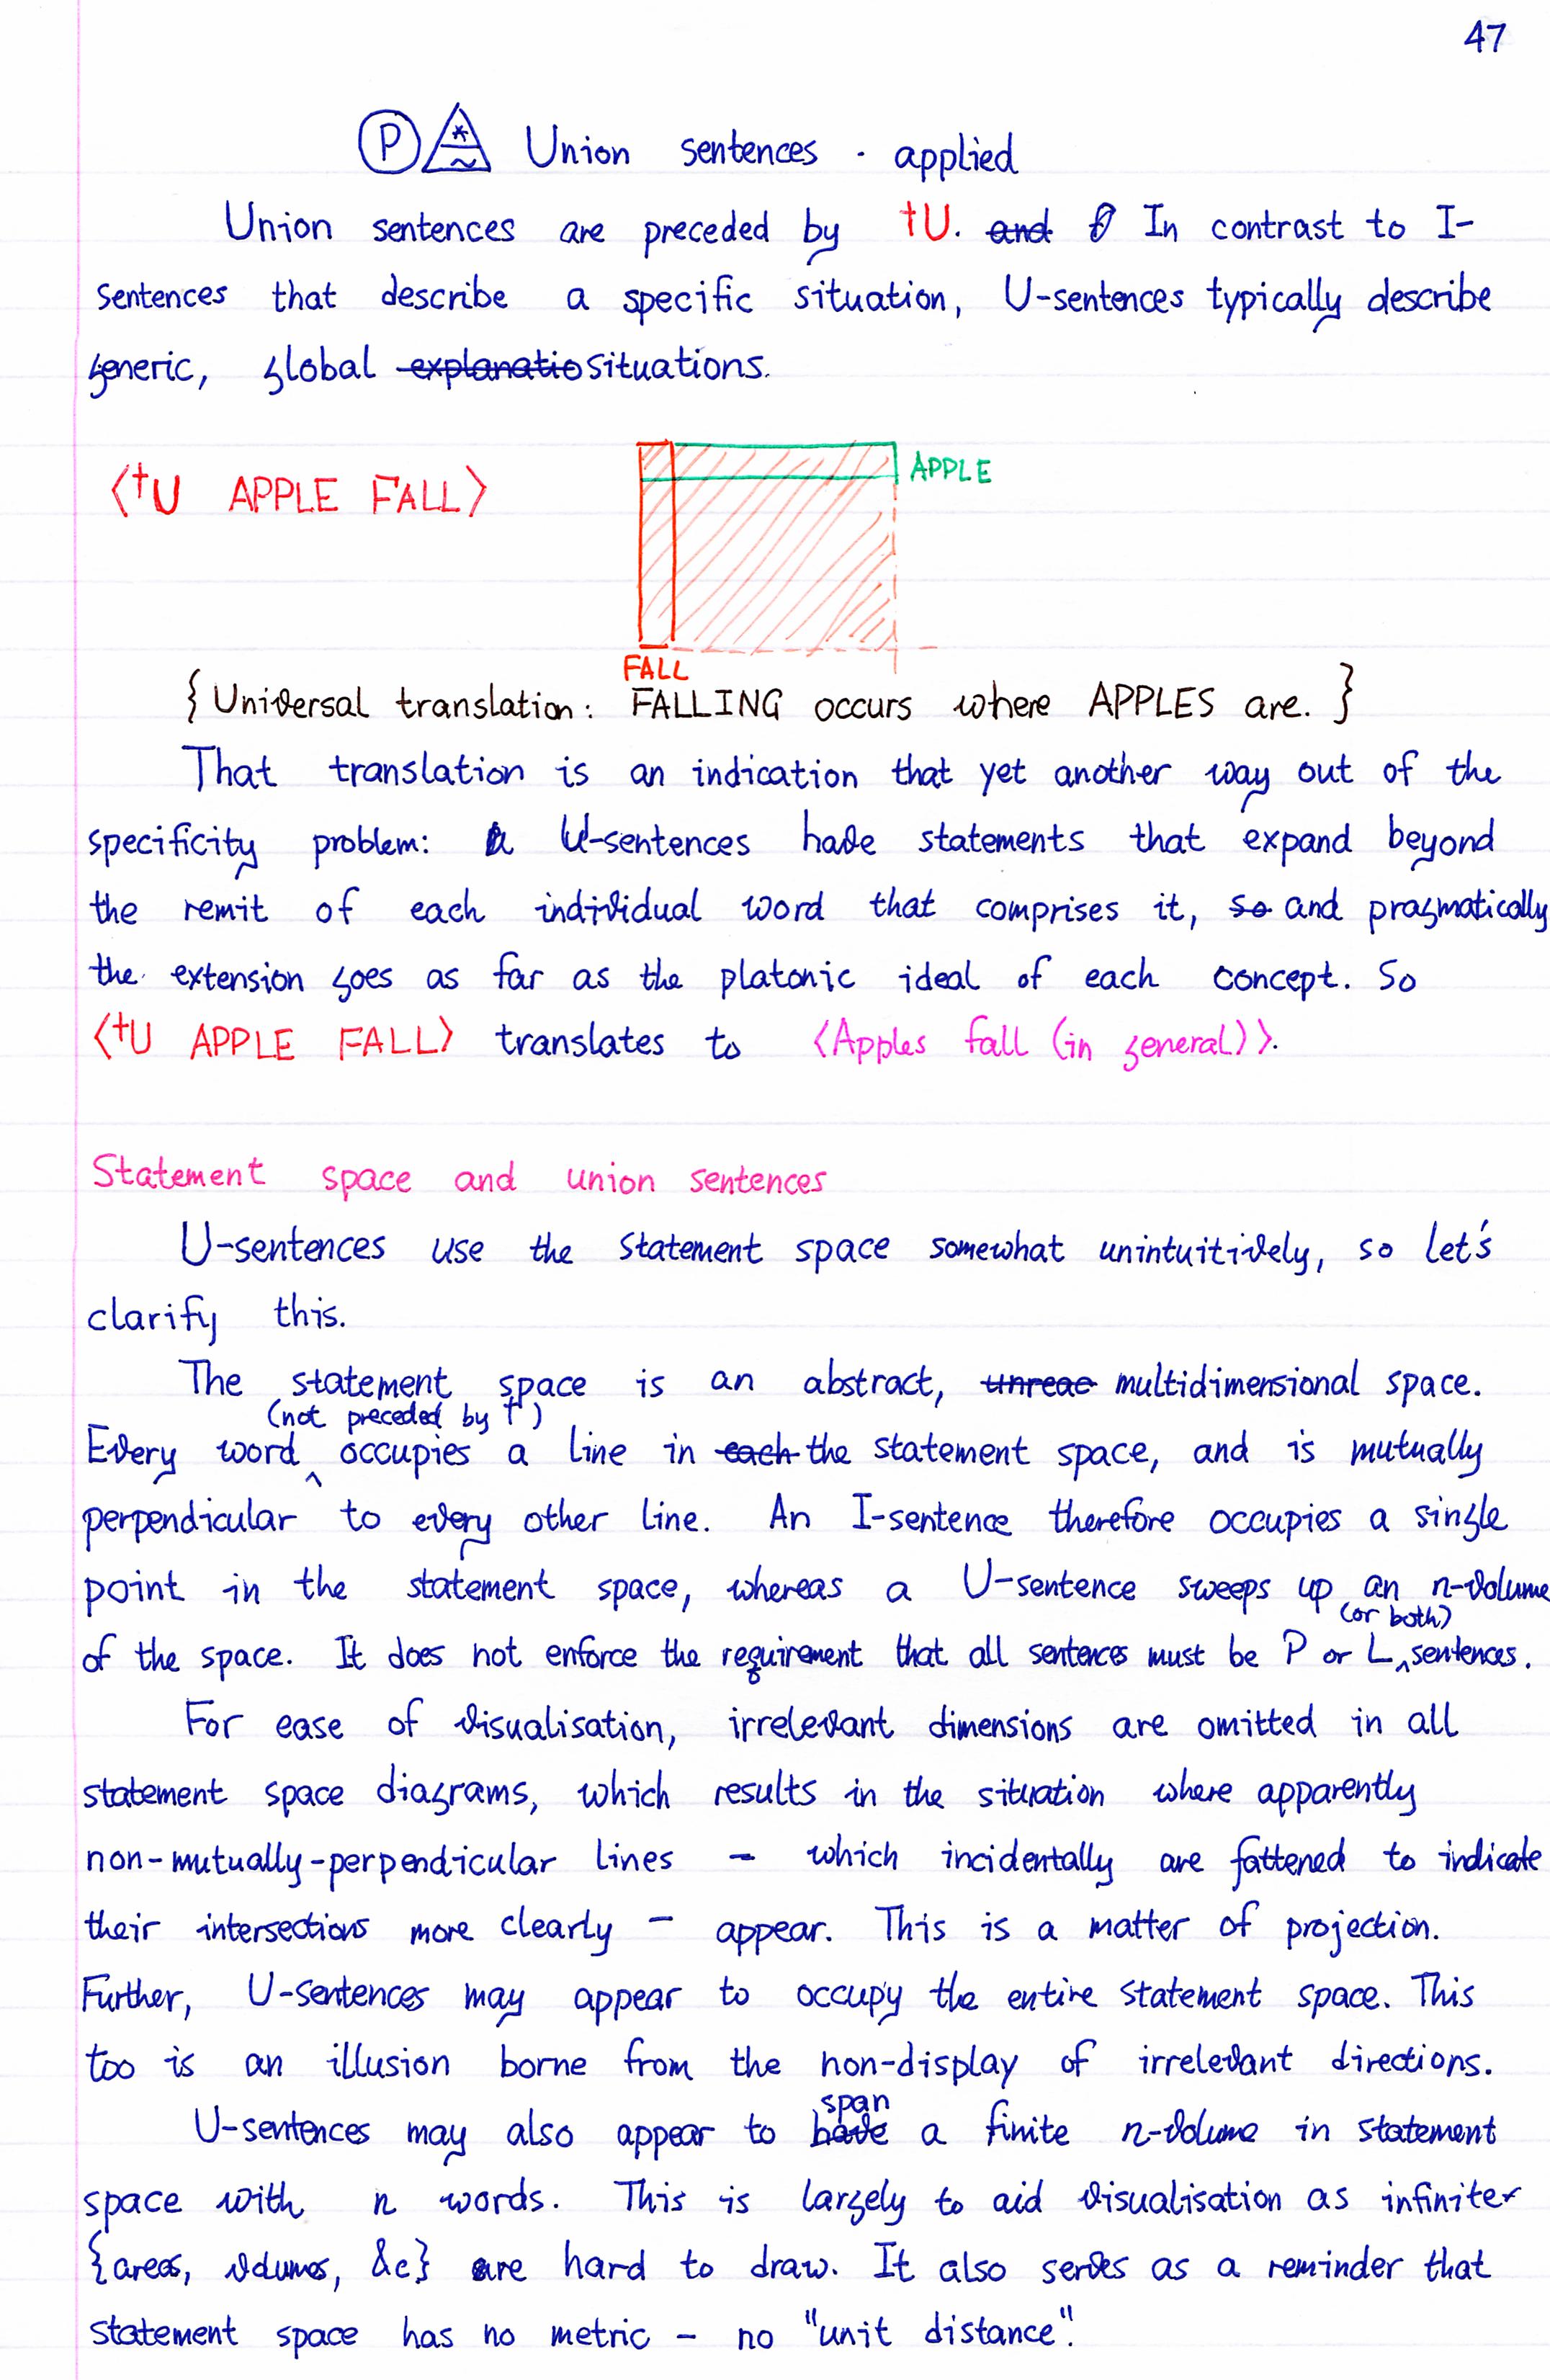 47
P * ~ Union sentences · applied
Union sentences are preceded by †U. and In contrast to I-
sentences that describe a specific situation, U-sentences typically describe
generic, global explanatio situations.
⟨†U APPLE FALL⟩
APPLE
FALL
{ Universal translation: FALLING occurs where APPLES are. }
That translation is an indication that yet another way out of the
specificity problem: U-sentences have statements that expand beyond
the remit of each individual word that comprises it, so and pragmatically
the extension goes as far as the platonic ideal of each concept. So
⟨†U APPLE FALL⟩ translates to ⟨Apples fall (in general)⟩.
Statement space and union sentences
U-sentences use the statement space somewhat unintuitively, so let's
clarify this.
The statement space is an abstract, unreac multidimensional space.
(not preceded by †)
Every word ^ occupies a line in each the statement space, and is mutually
perpendicular to every other line. An I-sentence therefore occupies a single
point in the statement space, whereas a U-sentence sweeps up an n-volume
(or both)
of the space. It does not enforce the requirement that all sentences must be P or L ^ sentences.
For ease of visualisation, irrelevant dimensions are omitted in all
statement space diagrams, which results in the situation where apparently
non-mutually-perpendicular lines – which incidentally are fattened to indicate
their intersections more clearly – appear. This is a matter of projection.
Further, U-sentences may appear to occupy the entire statement space. This
too is an illusion borne from the non-display of irrelevant directions.
span
U-sentences may also appear to have a finite n-volume in statement
space with n words. This is largely to aid visualisation as infinite
{areas, volumes, &c} are hard to draw. It also serves as a reminder that
statement space has no metric – no "unit distance".